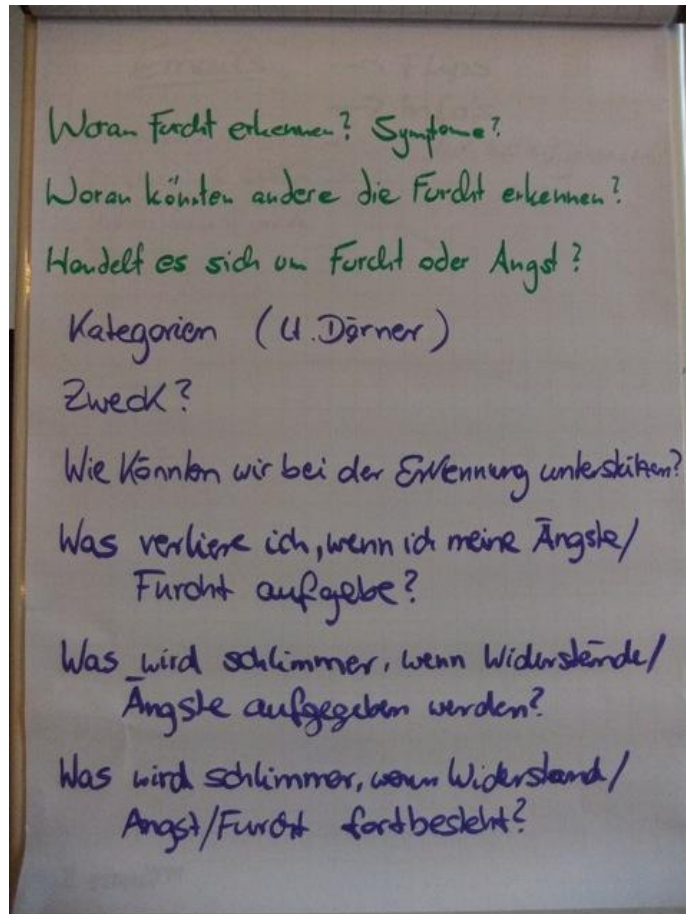 Woran Furcht erkennen? Symptome?
Woran könnten andere die Furcht erkennen?
Handelt es sich um Furcht oder Angst?
Kategorien (U. Dörner)
Zweck?
Wie könnten wir bei der Erkennung unterstützen?
Was verliere ich, wenn ich meine Ängste/
Furcht aufgebe?
Was wird schlimmer, wenn Widerstände/
Ängste aufgegeben werden?
Was wird schlimmer, wenn Widerstand/
Angst/Furcht fortbesteht?